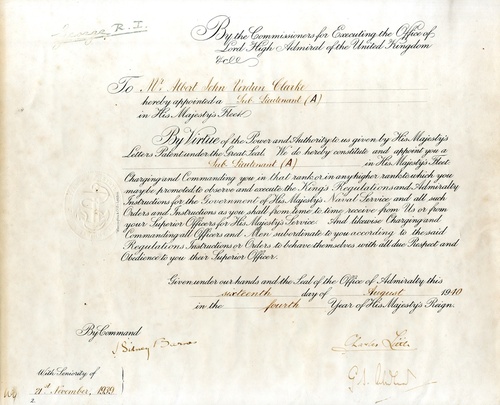 George R.I.
By the Commissioners for Executing the Office of
Lord High Admiral of the United Kingdom
&c &c
To Mr. Albert John Clarke
hereby appointed a Sub Lieutenant (A)
in His Majesty's Fleet
By Virtue of the Power and Authority to us given by His Majesty's
Letters Patent under the Great Seal We do hereby constitute and appoint you a
Sub Lieutenant (A) in His Majesty's Fleet
Charging and Commanding you in that rank or in any higher rank to which you
may be promoted to observe and execute the King's Regulations and Admiralty
Instructions for the Government of His Majesty's Naval Service and all such
Orders and Instructions as you shall from time to time receive from Us or from
your Superior Officers for His Majesty's Service And likewise Charging and
Commanding all Officers and Men subordinate to you according to the said
Regulations Instructions or Orders to behave themselves with all due Respect and
Obedience to you their Superior Officer.
Given under our hands and the Seal of the Office of Admiralty this
sixteenth day of August 1940
in the fourth Year of His Majesty's Reign.
By Command
Sidney Barnes
Charles Little
With Seniority of
21st November, 1939
2